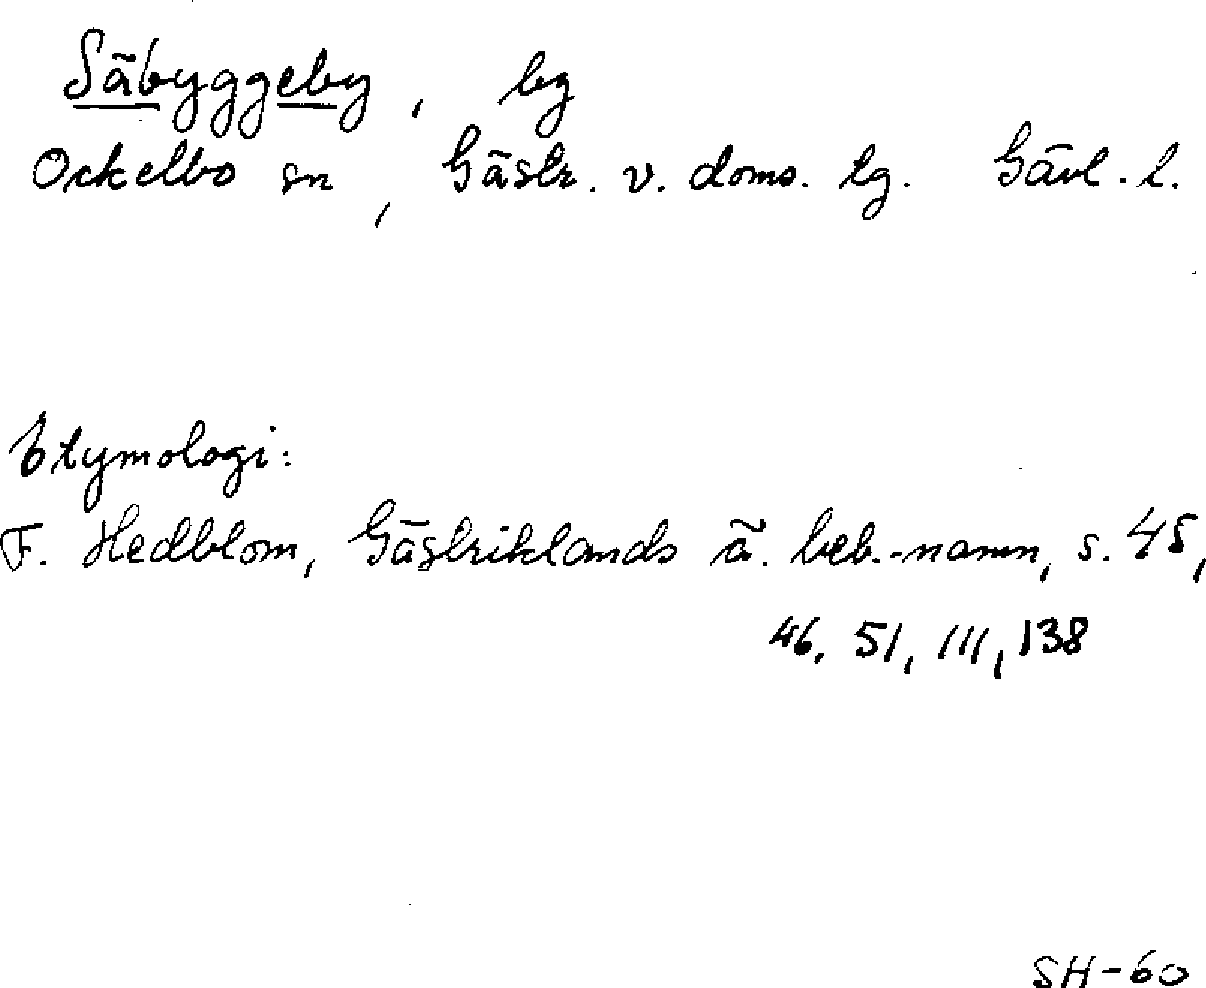 Säbyggeby, by
Ockelbo sn, Gästr. v. doms. tg. Gävl. l.
Etymologi:
F. Hedblom, Gästriklands ä. beb.-namn, s. 45,
46, 51, 111, 138
SH-60